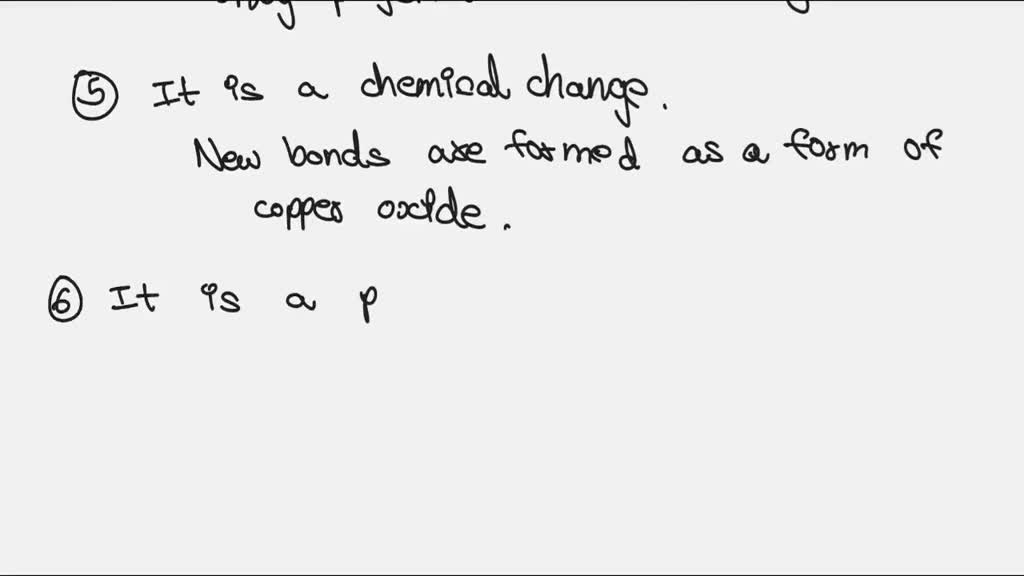 ⑤ It is a chemical change.
New bonds are formed as a form of
copper oxide.
⑥ It is a p